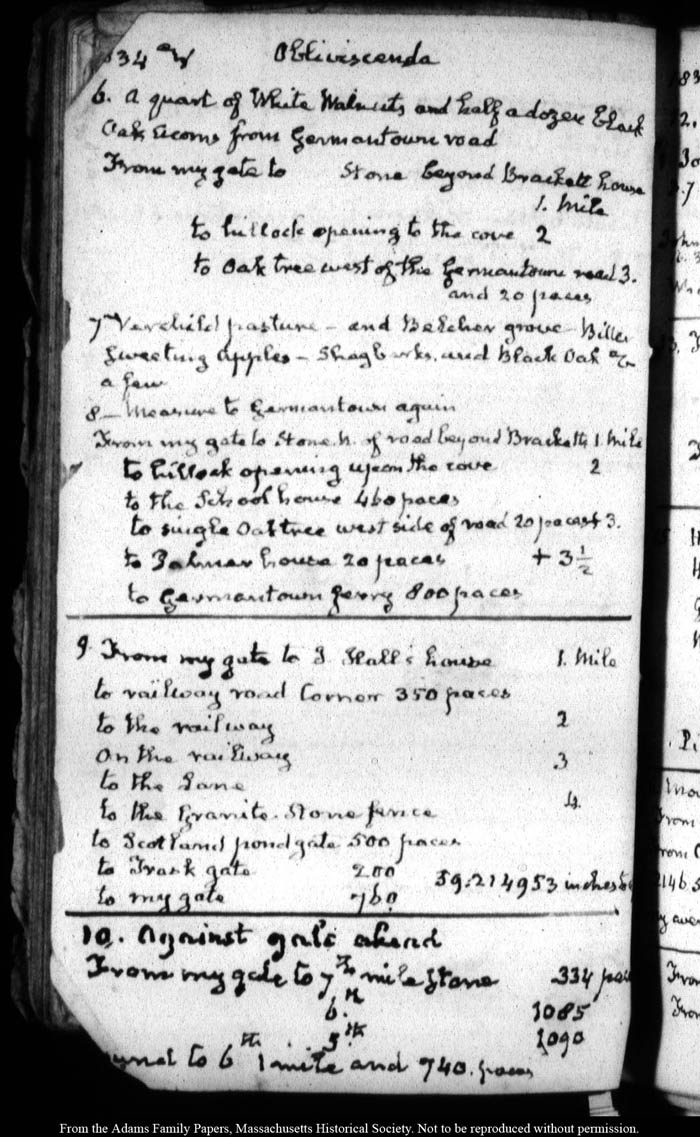 334 Obliviscenda
6. A quart of White Walnuts and half a dozen Black
Oak acorns from Germantown road
From my gate to Stone beyond Brackett house
1. Mile
to hillock opening to the cove 2
to Oak tree west of the Germantown road 3.
and 20 paces
7 Verchild pasture – and Belcher grove – Biller
Sweeting apples – Shagbarks, and Black Oak
a few
8 – Measure to Germantown again
From my gate to Stone N. of road beyond Bracketts 1. Mile
to hillock opening upon the cove 2
to the School house 460 paces
to single Oak tree west side of road 20 paces + 3.
to Palmer house 20 paces + 3 1/2
to Germantown ferry 800 paces
9 From my gate to J Hall's house 1. Mile
to railway road Corner 350 paces
to the railway 2
On the railway 3
to the Lane
to the Granite Stone fence 4.
to Scotland pond gate 500 paces
to Trask gate 200
39.214953 inches
to my gate 760
10. Against gale ahead
From my gate to 7th mile Stone 334
6.th 1085
5th 1090
to 6th 1 mile and 740. paces
From the Adams Family Papers, Massachusetts Historical Society. Not to be reproduced without permission.